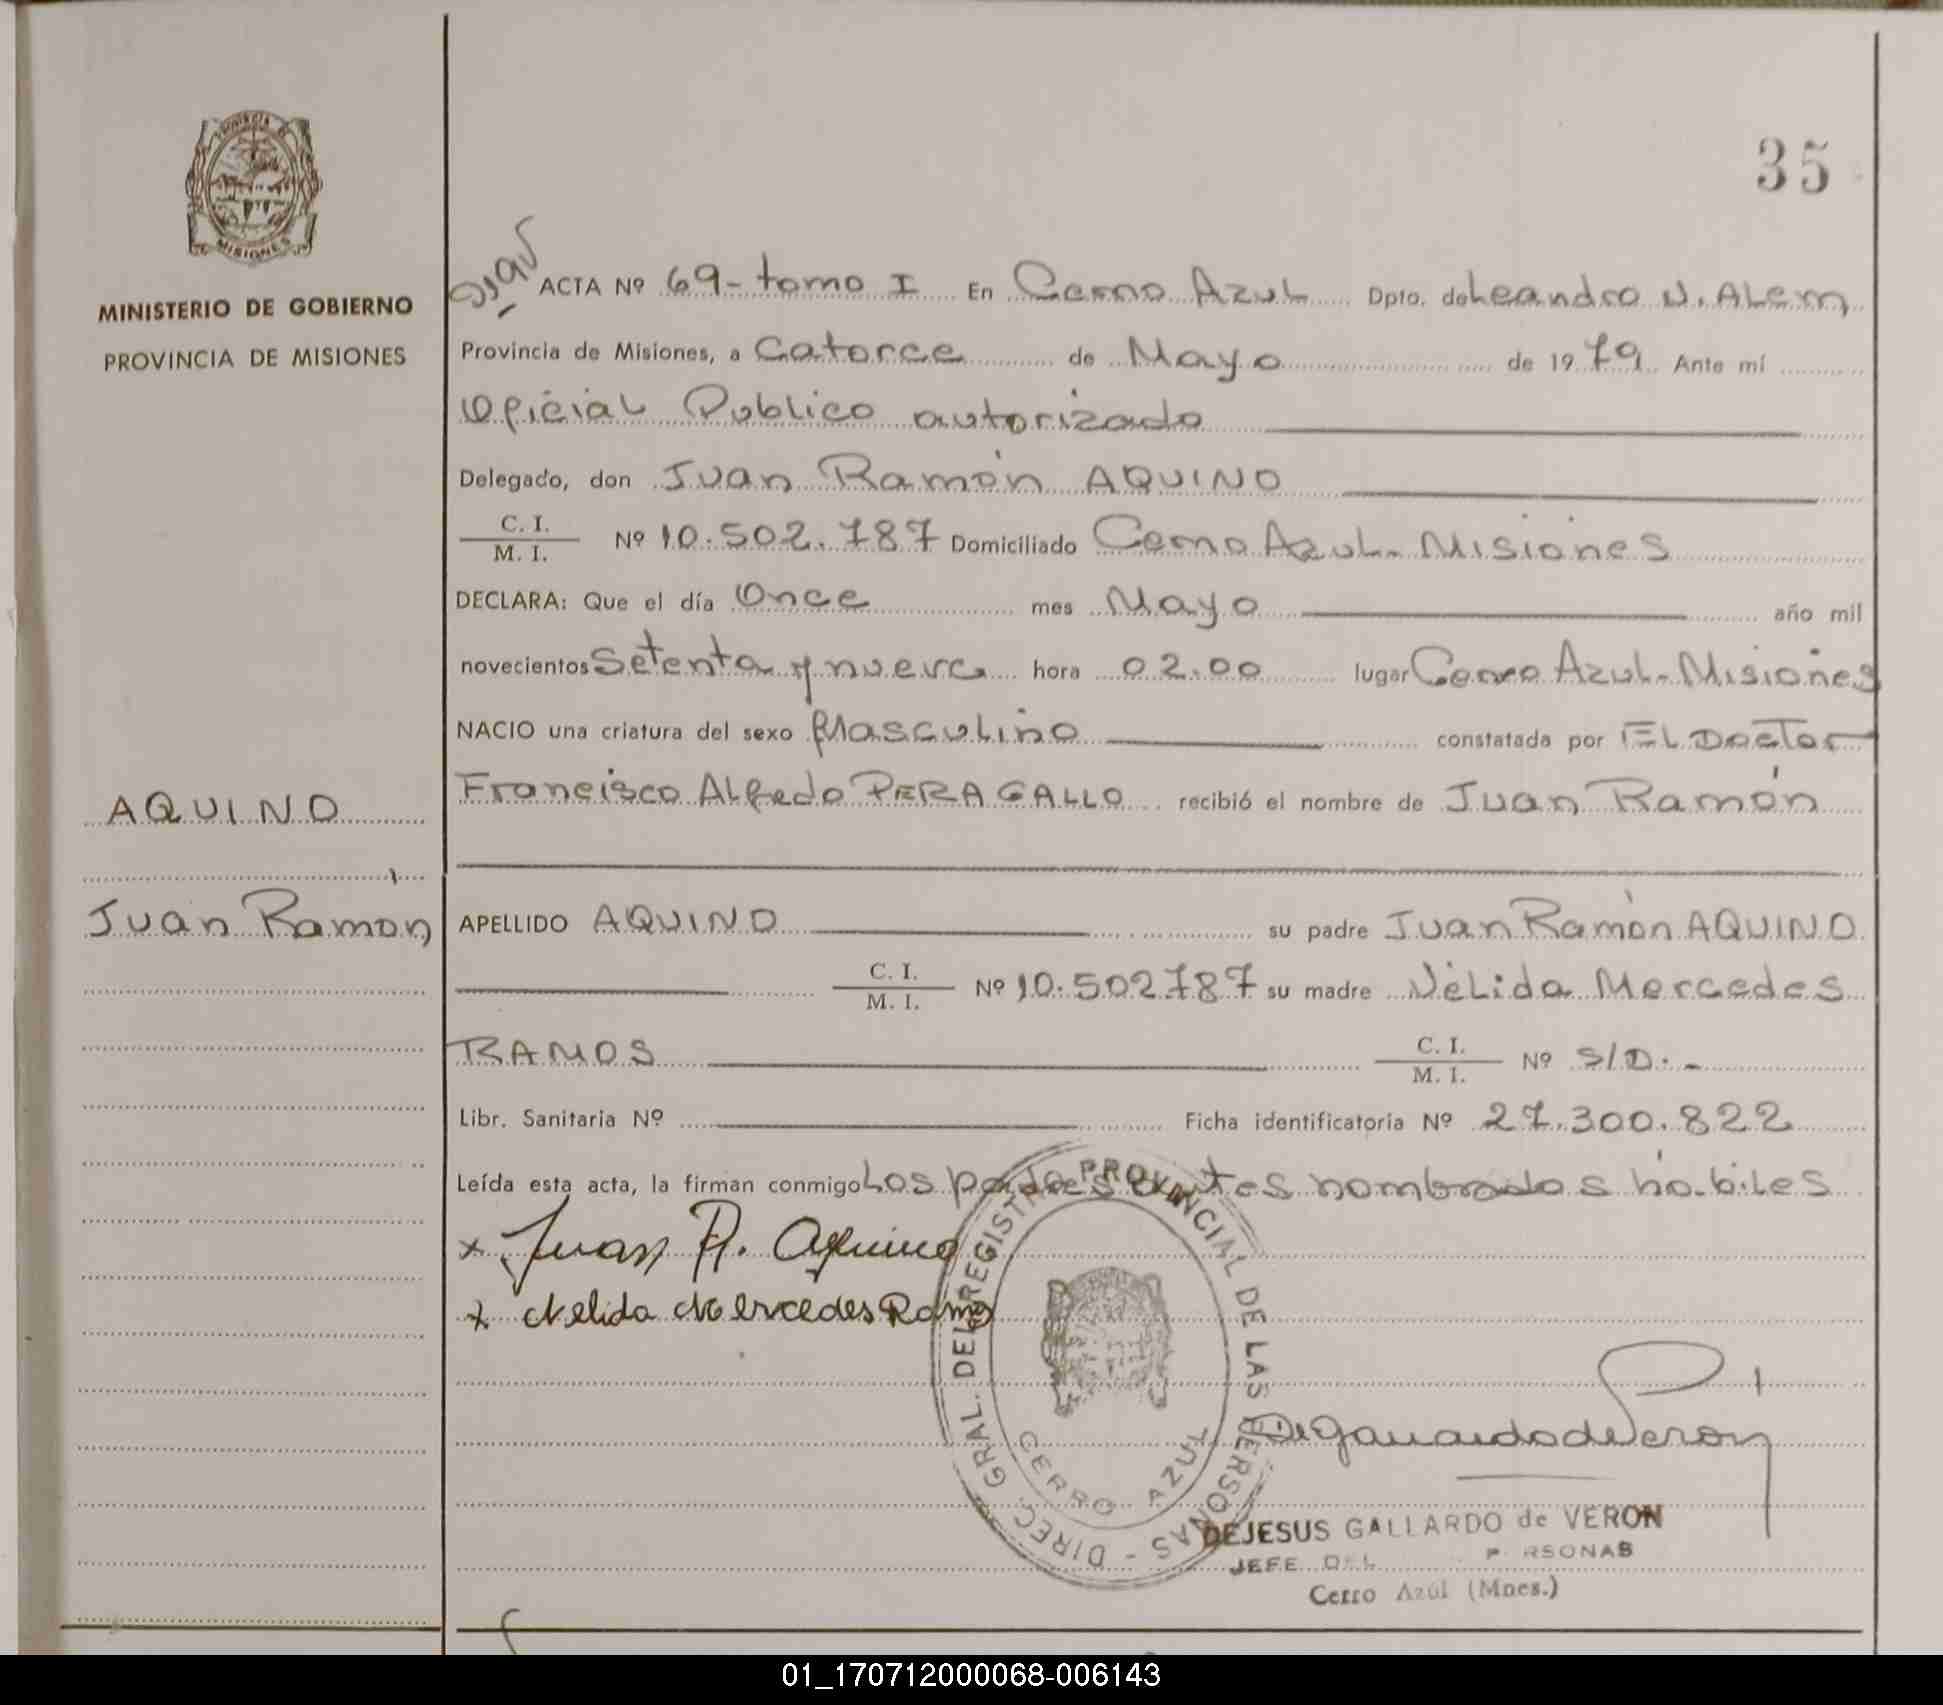 35
PROVINCIA DE
MISIONES
MINISTERIO DE GOBIERNO
PROVINCIA DE MISIONES
AQUINO
Juan Ramón
ACTA Nº 69- tomo I En Cerro Azul Dpto. de Leandro N. Alem
Provincia de Misiones, a Catorce de Mayo de 1979 Ante mí
Oficial Publico autorizado
Delegado, don Juan Ramón AQUINO
C. I.
M. I. Nº 10.502.787 Domiciliado Cerro Azul- Misiones
DECLARA: Que el día Once mes Mayo año mil
novecientos Setenta y nueve hora 02.00 lugar Cerro Azul- Misiones
NACIO una criatura del sexo Masculino constatada por El Doctor
Francisco Alfedo PERAGALLO recibió el nombre de Juan Ramón
APELLIDO AQUINO su padre Juan Ramón AQUINO
C. I.
M. I. Nº 10.502.787 su madre Nélida Mercedes
RAMOS C. I.
M. I. Nº S/D.-
Libr. Sanitaria Nº Ficha identificatoria Nº 27.300.822
Leída esta acta, la firman conmigo Los padres nombrados hábiles
x Juan R. Aquino
x Nelida Mercedes Ramos
DIREC. GRAL. DEL REGISTRO PROVINCIAL DE LAS PERSONAS -
CERRO AZUL
D. Gallardo de Veron
DEJESUS GALLARDO de VERON
JEFE DEL P RSONAS
Cerro Azul (Mnes.)
01_170712000068-006143